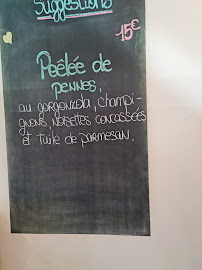 Suggestions
15€
Poêlée de
pennes
au gorgonzola, champi-
gnons, noisettes concassées
et tuile de parmesan.